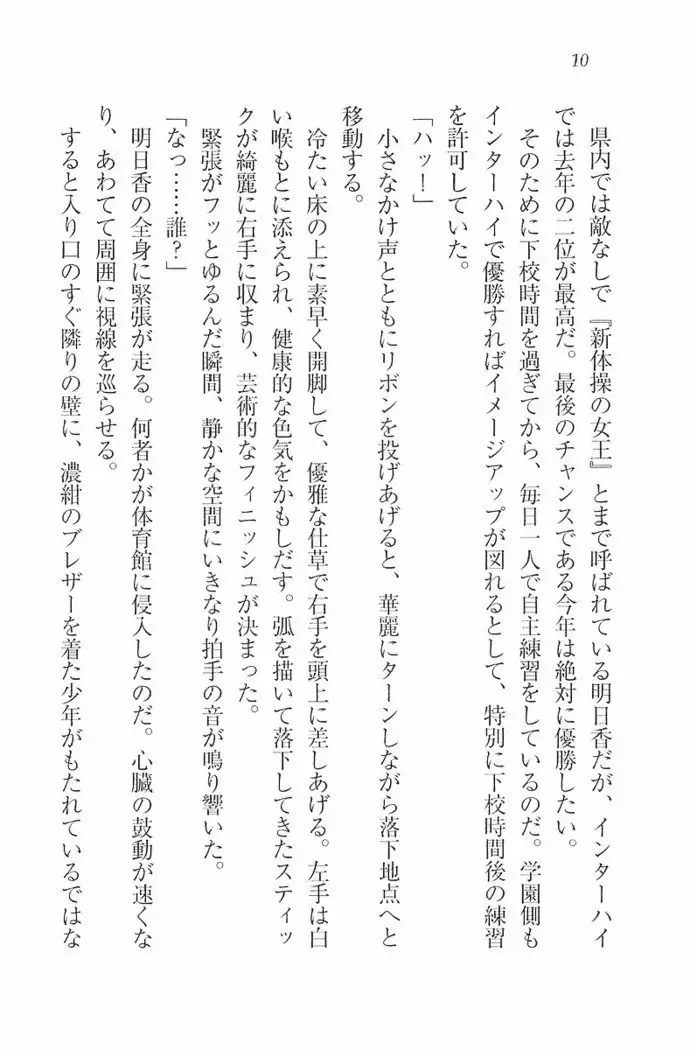 10
県内では敵なしで『新体操の女王』とまで呼ばれている明日香だが、インターハイ
では去年の二位が最高だ。最後のチャンスである今年は絶対に優勝したい。
そのために下校時間を過ぎてから、毎日一人で自主練習をしているのだ。学園側も
インターハイで優勝すればイメージアップが図れるとして、特別に下校時間後の練習
を許可していた。
「ハッ！」
小さなかけ声とともにリボンを投げあげると、華麗にターンしながら落下地点へと
移動する。
冷たい床の上に素早く開脚して、優雅な仕草で右手を頭上に差しあげる。左手は白
い喉もとに添えられ、健康的な色気をかもしだす。弧を描いて落下してきたスティッ
クが綺麗に右手に収まり、芸術的なフィニッシュが決まった。
緊張がフッとゆるんだ瞬間、静かな空間にいきなり拍手の音が鳴り響いた。
「なっ……誰？」
明日香の全身に緊張が走る。何者かが体育館に侵入したのだ。心臓の鼓動が速くな
り、あわてて周囲に視線を巡らせる。
すると入り口のすぐ隣りの壁に、濃紺のブレザーを着た少年がもたれているではな